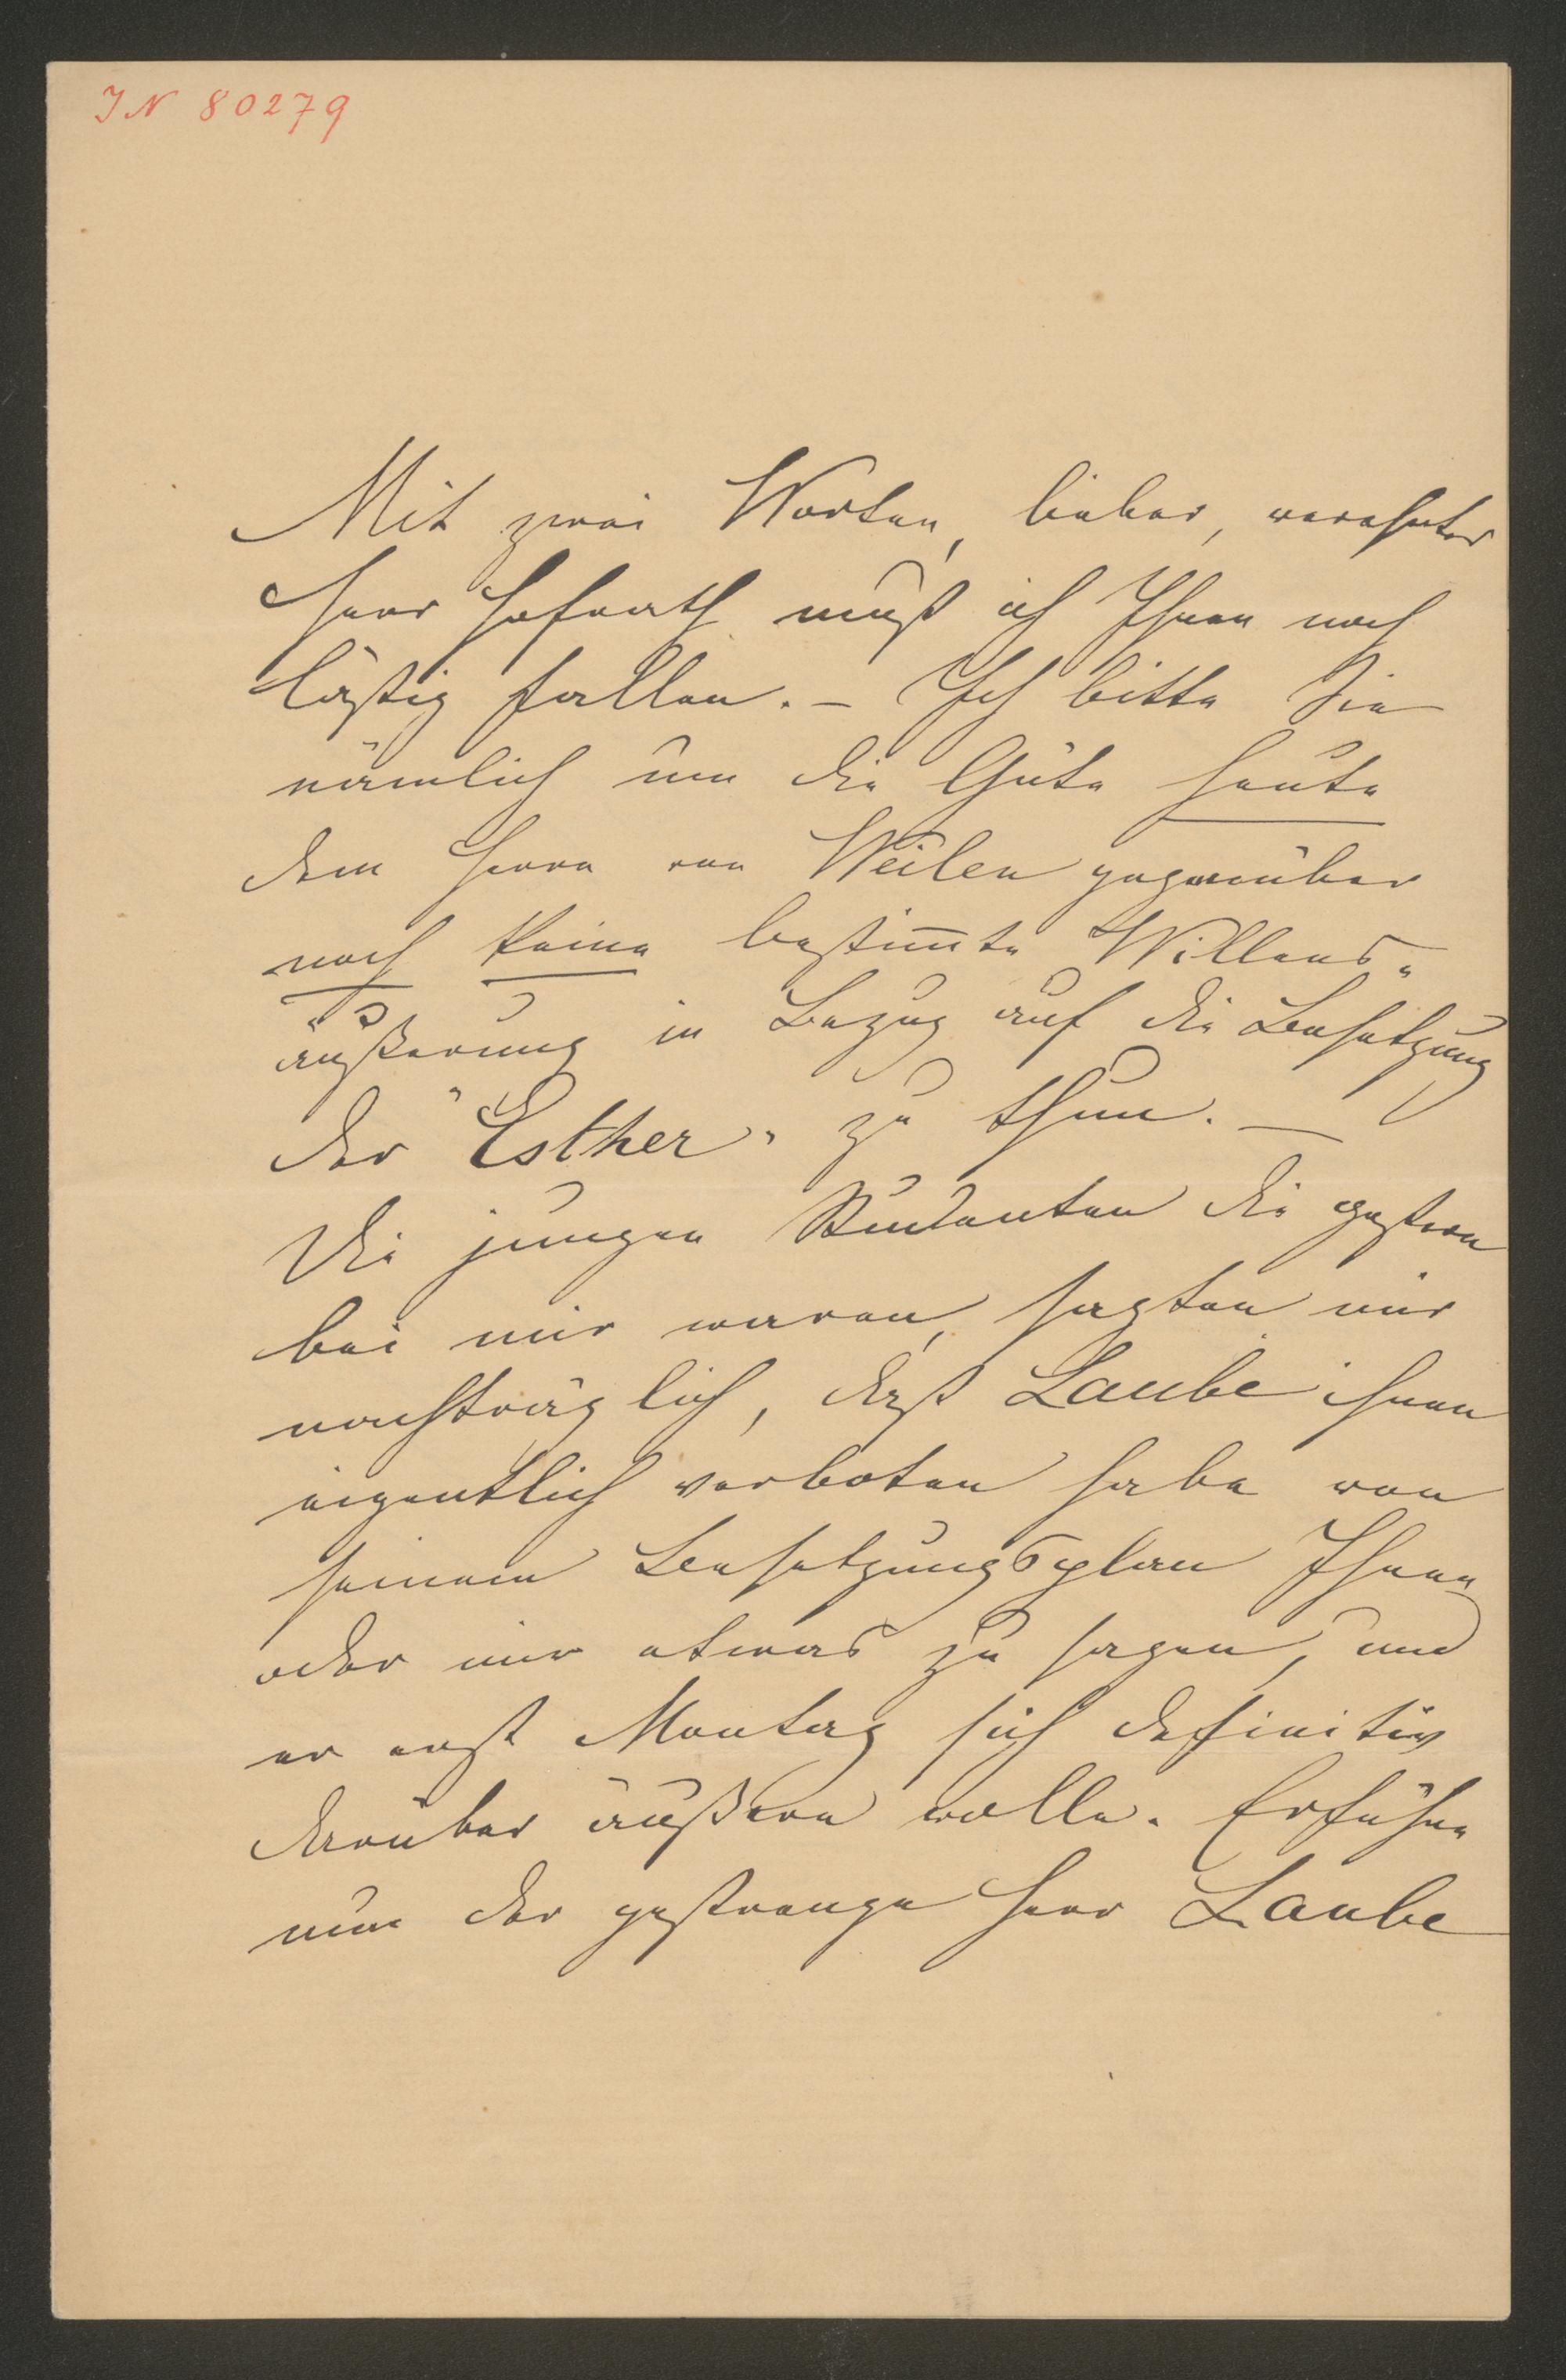 IN 80279
Mit zwei Worten, lieber, verehrter
Herr Hofrath muß ich Ihnen noch
lästig fallen. – Ich bitte Sie
nämlich um die Güte heute
dem Herrn von Weilen gegenüber
noch keine bestim̅te Willens-
äußerung in Bezug auf die Besetzung
der "Esther" zu thun. —
Die jungen Studenten die gestern
bei mir waren, sagten mir
nachträglich, daß Laube ihnen
eigentlich verboten habe von
seinem Besetzungsplan Ihnen
oder mir etwas zu sagen, und
er erst Montag sich definitiv
darüber äußern wolle. Erführe
nun der gestrenge Herr Laube